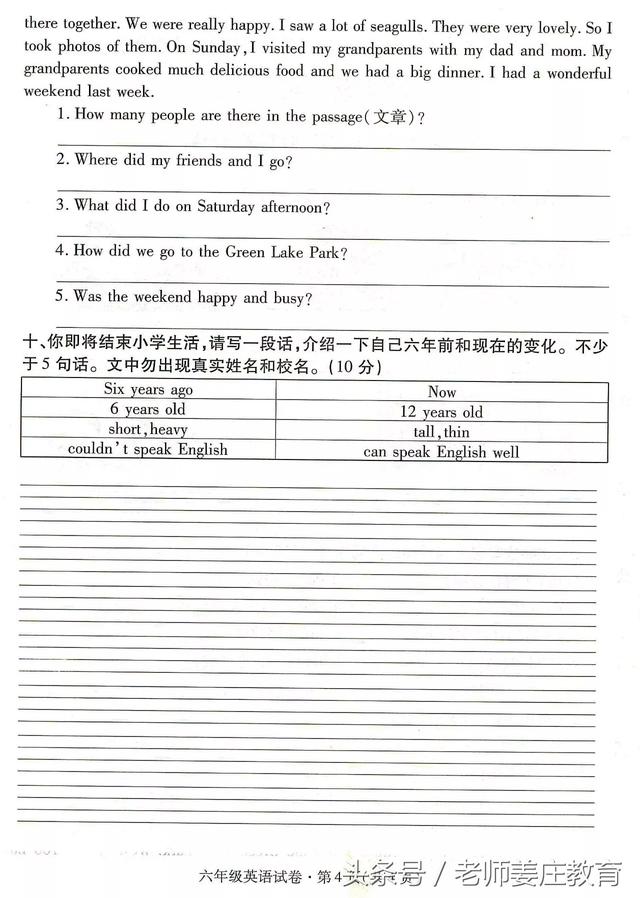 there together. We were really happy. I saw a lot of seagulls. They were very lovely. So I
took photos of them. On Sunday, I visited my grandparents with my dad and mom. My
grandparents cooked much delicious food and we had a big dinner. I had a wonderful
weekend last week.
1. How many people are there in the passage(文章)?
2. Where did my friends and I go?
3. What did I do on Saturday afternoon?
4. How did we go to the Green Lake Park?
5. Was the weekend happy and busy?
十、你即将结束小学生活,请写一段话,介绍一下自己六年前和现在的变化。不少
于5句话。文中勿出现真实姓名和校名。(10分)
Six years ago Now
6 years old 12 years old
short,heavy tall,thin
couldn't speak English can speak English well
六年级英语试卷·第4页
头条号/老师姜庄教育